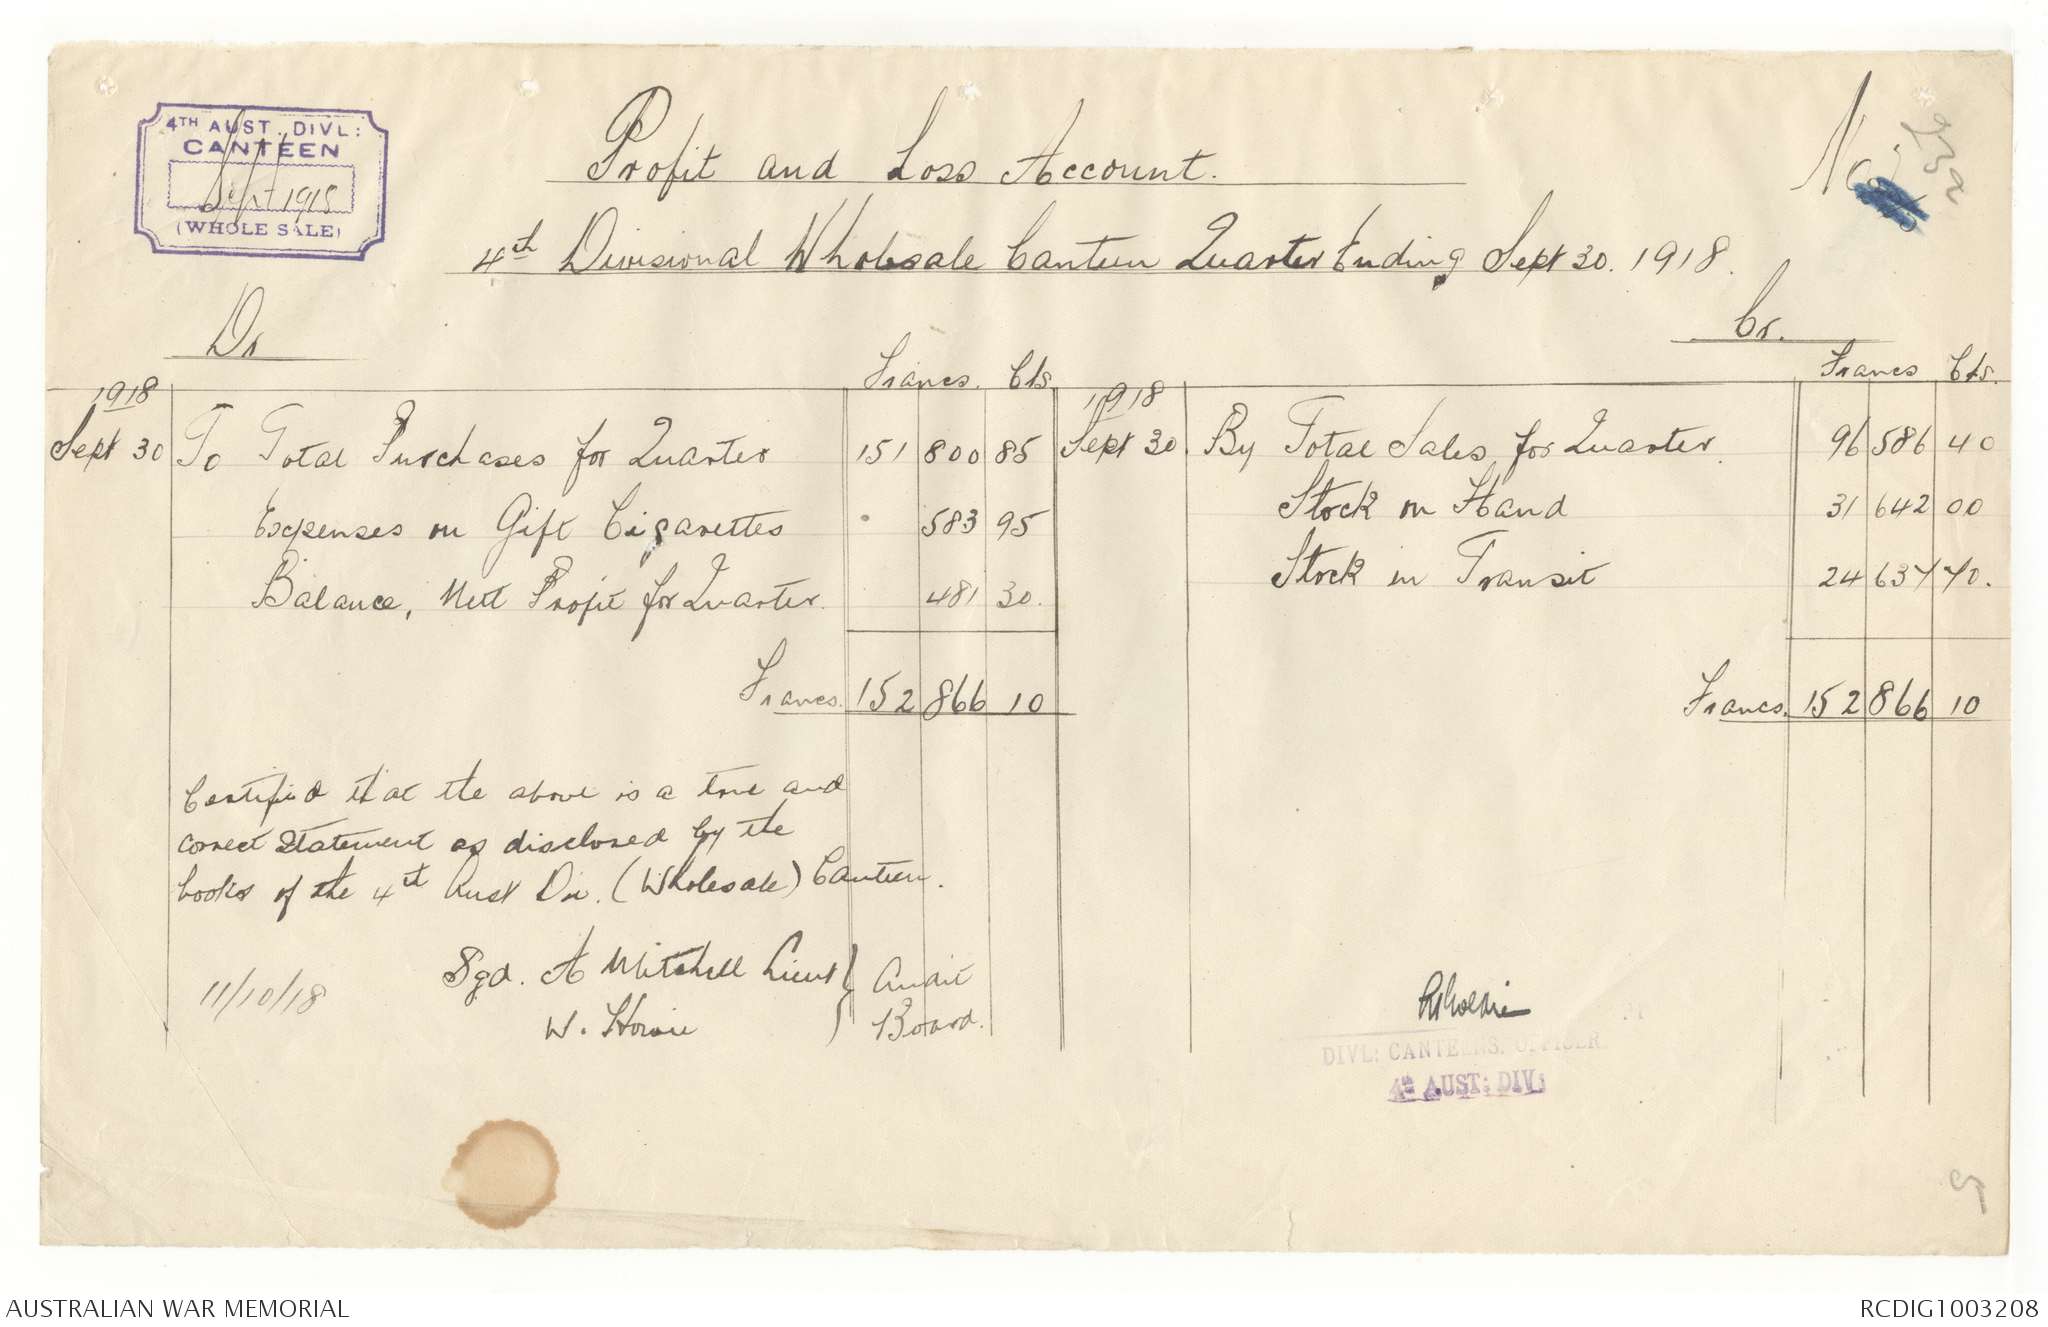 4TH AUST. DIVL:
CANTEEN
Sept 1918
(WHOLE SALE)
Profit and Loss Account.
No
4th Divisional Wholesale Canteen Quarter Ending Sept 30. 1918.
Dr
Cr.
Francs. Cts
Francs Cts.
1918
1918
Sept 30 To Total Purchases for Quarter 151 800 85 Sept 30 By Total Sales for Quarter. 96 586 40
Expenses on Gift Cigarettes 583 95 Stock on Hand 31 642 00
Balance, Nett Profit for Quarter. 481 30. Stock in Transit 24 637 70.
Francs. 152 866 10 Francs. 152 866 10
Certified that the above is a true and
correct Statement as disclosed by the
books of the 4th Aust Div. (Wholesale) Canteen.
11/10/18 Sgd. A Mitchell Lieut } Audit
W. Howie Board.
DIVL: CANTEENS. OFFICER.
4th AUST: DIV:
5
AUSTRALIAN WAR MEMORIAL RCDIG1003208